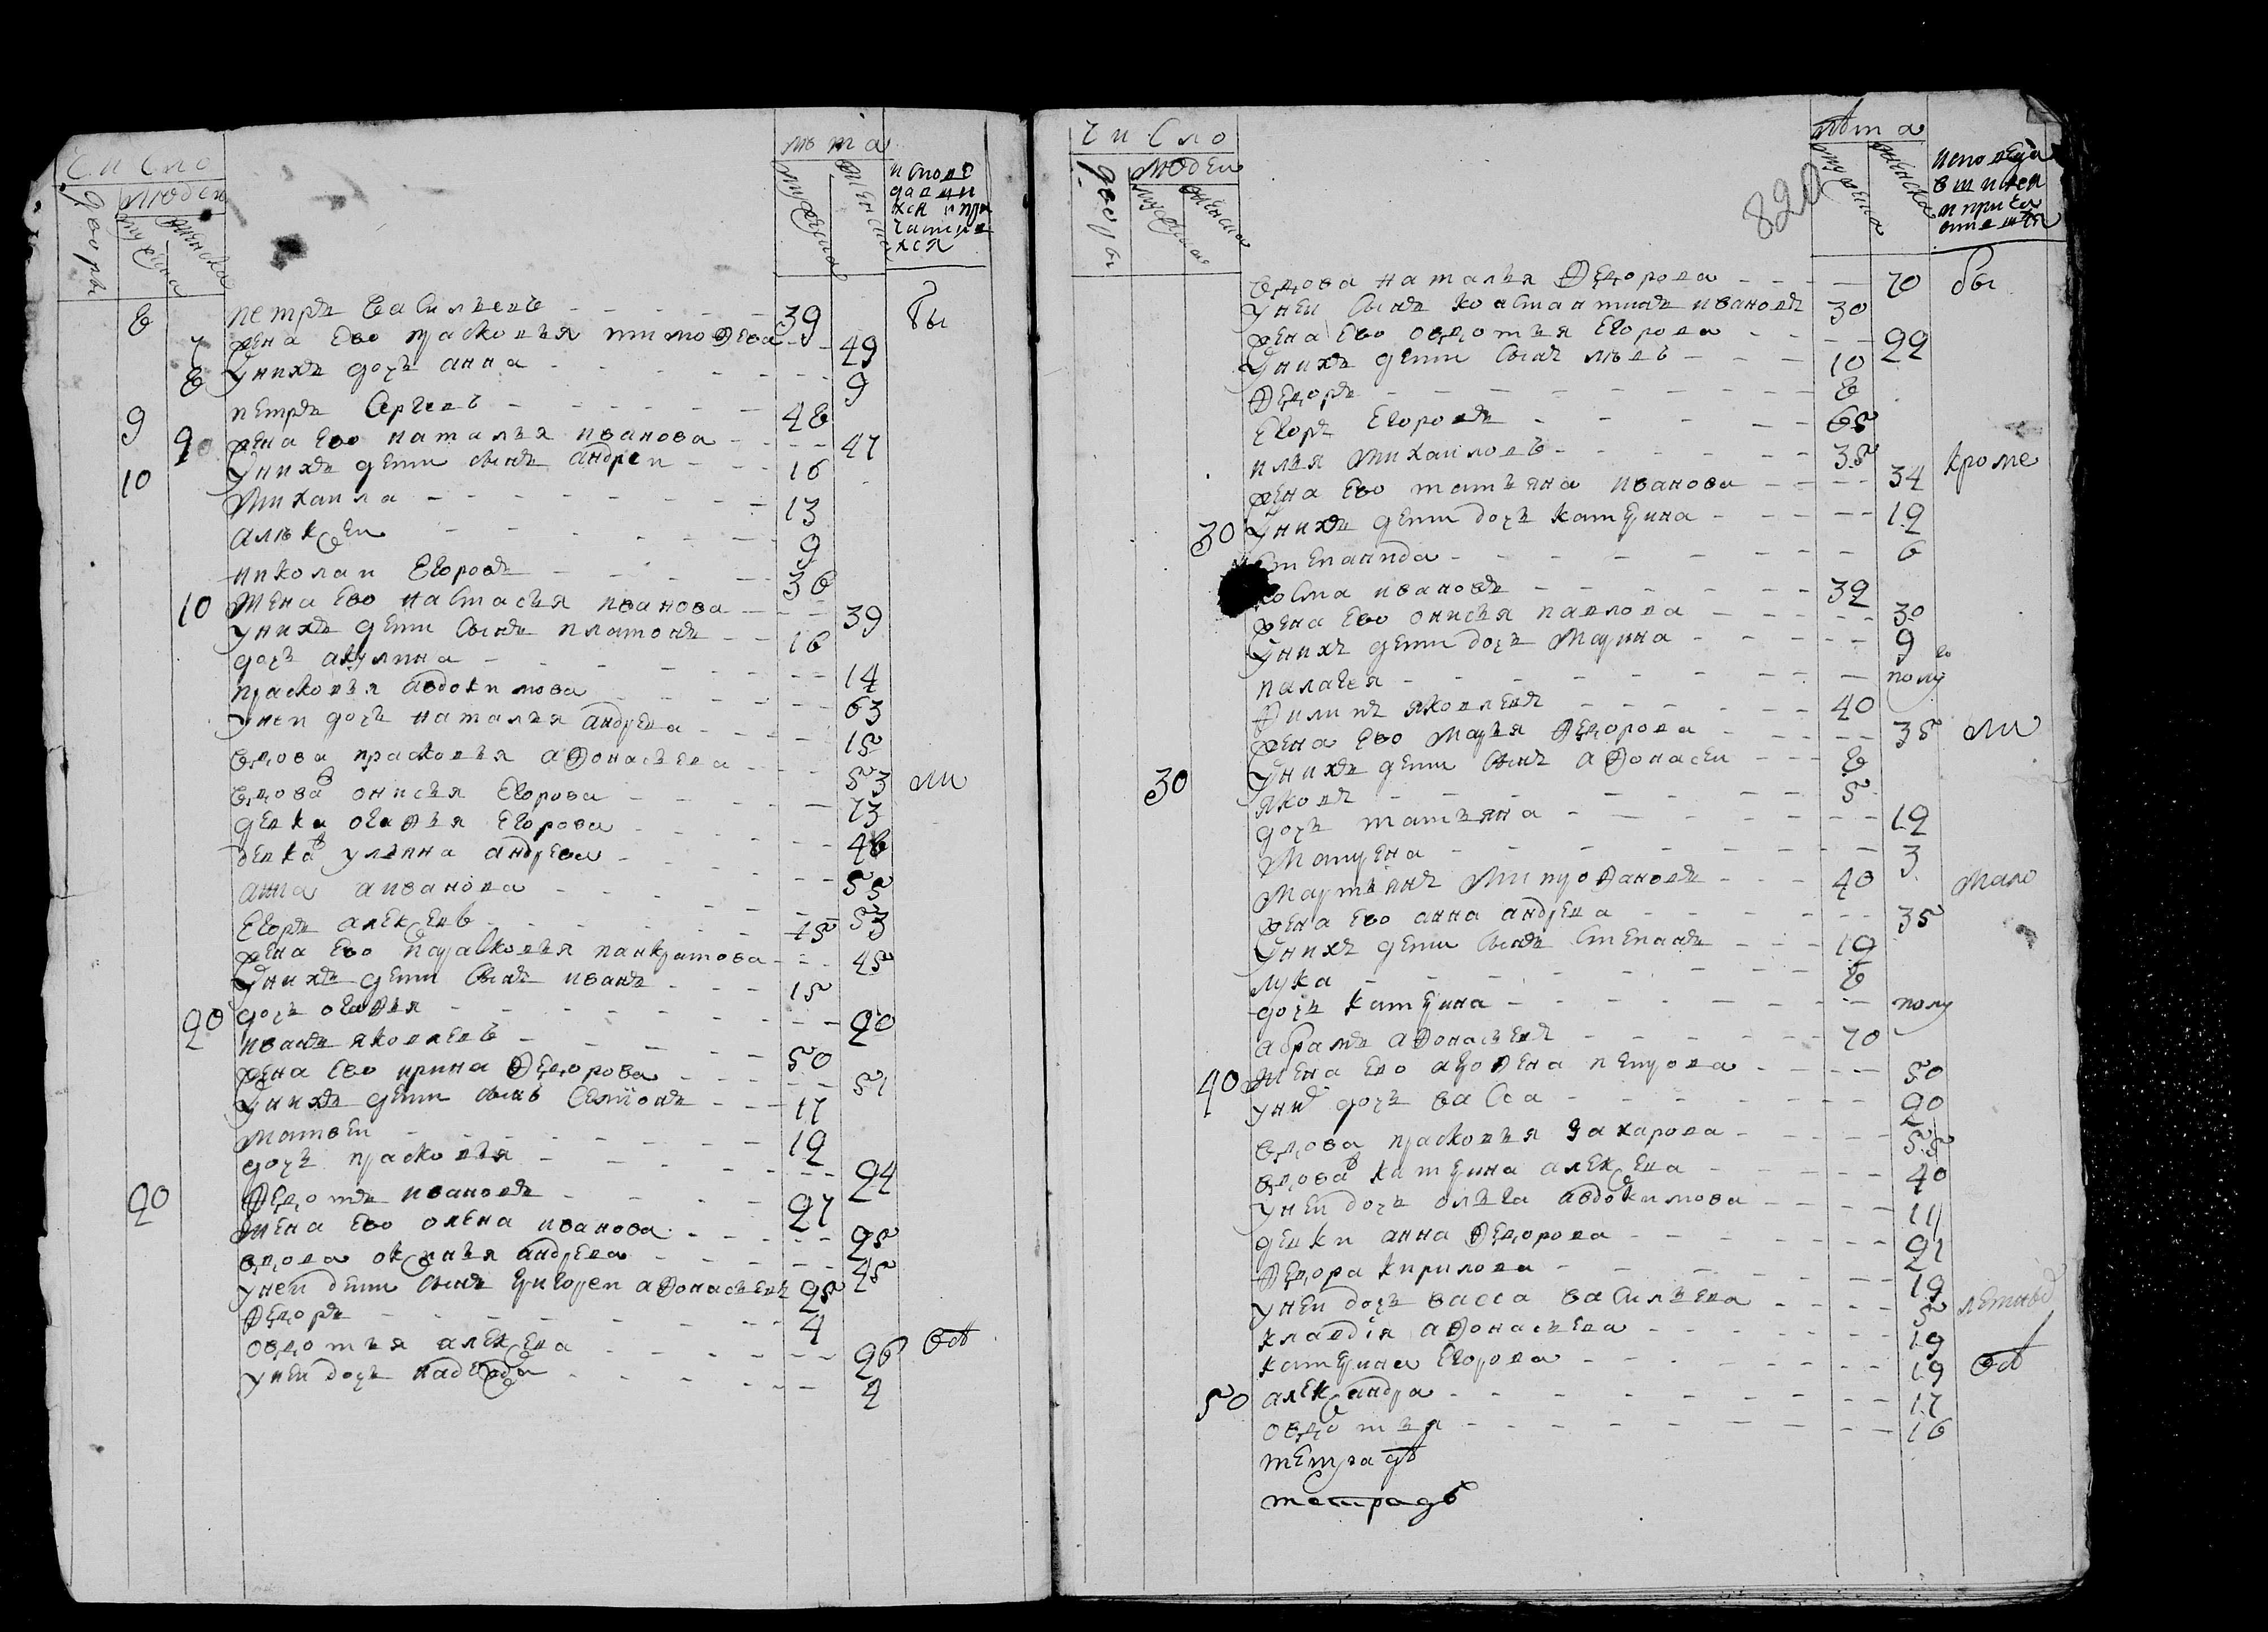 Число
люден
дворы
мужеска
женска
лѣта
мужеска
женска
исповѣ
давши
хся и при
частив
хся
8 петръ васильевъ 39 бы
7 жена ево прасковья тимофѣева 49
8 у нихъ дочь анна 9
9 петръ сергеевъ 48
9 жена ево наталья иванова 47
10 у нихъ дети сынъ андреи 16
михаила 13
алѣксеи 9
николаи егоровъ 36
10 жена ево настасья иванова 39
у нихъ дети сынъ платонъ 16
дочь акулина 14
прасковья авдокимова 63
у неи дочь наталья андрева 15
вдова прасковья афонасьева 53 ли
вдова онисья егорова 73
девка огафья егорова 48
девка ульяна андрева 55
анна иванова 53
егоръ алексевъ 45
жена ево прасковья панкратова 45
у нихъ дети сынъ иванъ 15
20 дочь огафья 20
иванъ яковлевъ 50
жена ево ирина федорова 51
у нихъ дети сынъ семионъ 17
матвеи 12
дочь прасковья 24
20 федотъ ивановъ 27
жена ево олена иванова 25
вдова оксинья андрева 45
у неи дети сынъ григореи афонасьевъ 25
федоръ 4
овдотья алексева 26 отъ
у неи дочь надежда 2
Число
люден
дворы
мужеска
женска
820
лѣта
мужеска
женска
исповеда
вшихся
и прича
стившихся
вдова наталья федорова 70 бы
у неи сынъ констант инъ ивановъ 30
жена ево овдотья егорова 22
у нихъ дети сынъ львъ 10
федоръ 8
егоръ егоровъ 65
илья михаиловъ 35
жена ево татьяна иванова 34 кроме
30 у нихъ дети дочь катерина 12
степанида 6
косма ивановъ 32
жена ево онисья павлова 30
у нихъ дети дочь марина 9
палагея полу
филипъ яковлевъ 40
жена ево марья федорова 35 ли
30 у нихъ дети сынъ афонасеи 8
яковъ 5
дочь татьяна 12
матрена 3
мартьянъ митрофановъ 40 мало
жена ево анна андрева 35
у нихъ дети сынъ степанъ 19
лука 8
дочь катерина полу
абрамъ афонасьевъ 70
40 жена ево агофена петрова 50
у них дочь васса 20
вдова прасковья захарова 55
вдова катерина алексева 40
у неи дочь ольга авдокимова 11
девки анна федорова 21
федора кирилова 19
у неи дочь васса васильева 5 летныя
клавдія афонасьева 19
катерина егорова 19 отъ
50 александра 17
овдотья 16
тетрадь
тетрадь